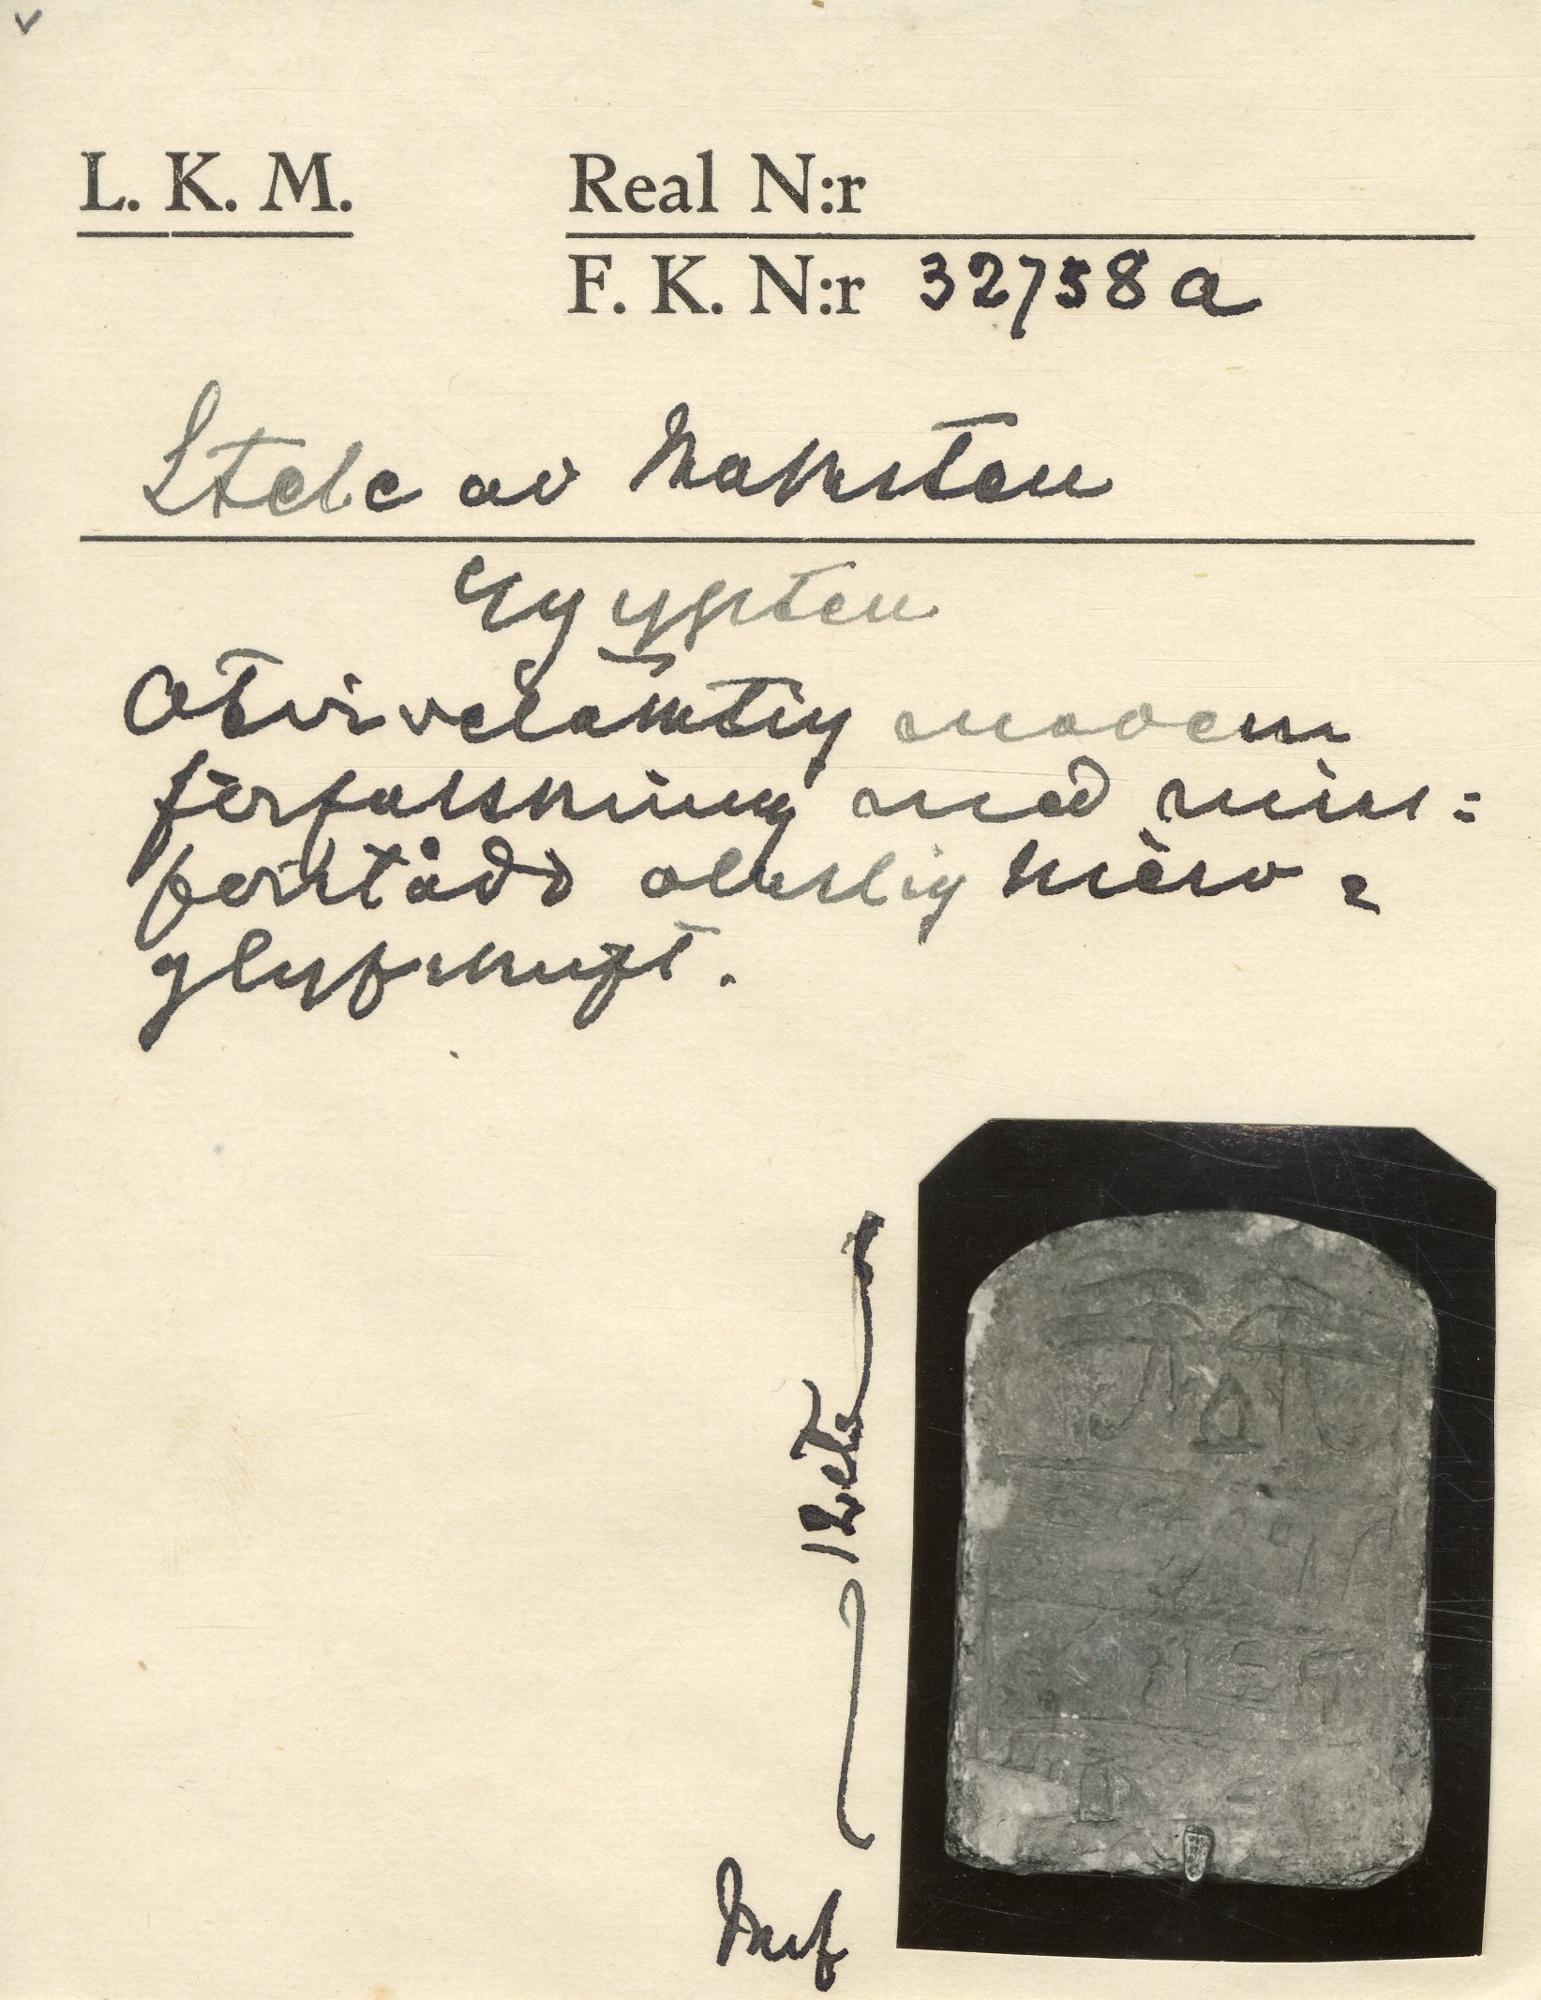 v
L. K. M.
Real N:r
F. K. N:r 32758a
Stele av kalksten
Egypten
Otvivelaktig modern
förfalskning med miss=
förstådd oläslig hiero=
glyfskrift.
12 ctm